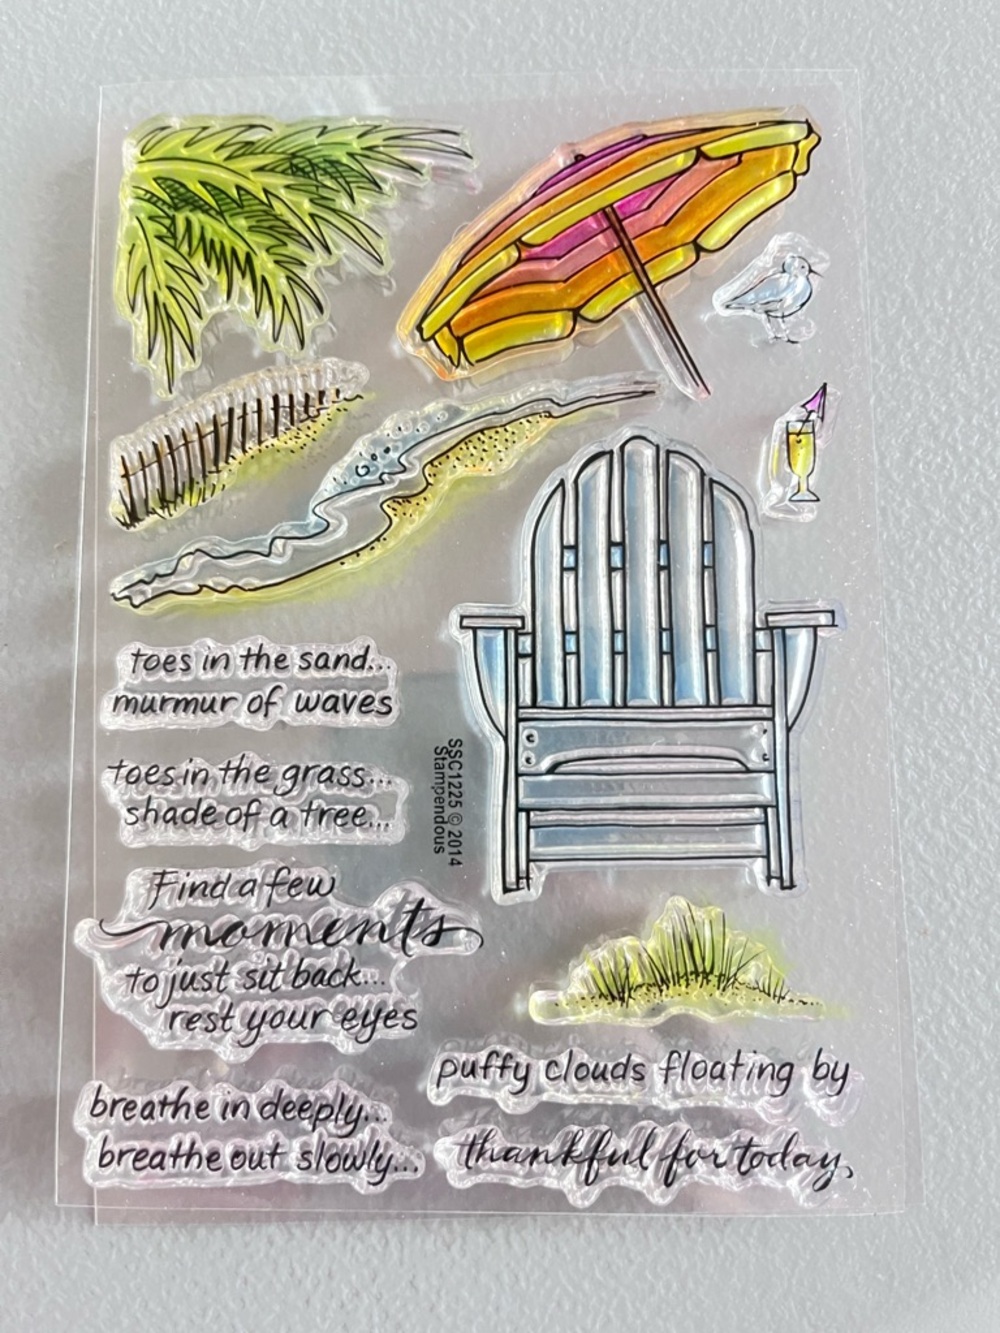 toes in the sand...
murmur of waves
toes in the grass...
shade of a tree...
SSC1225 © 2014
Stampendous
Find a few
moments
to just sit back...
rest your eyes
puffy clouds floating by
breathe in deeply...
breathe out slowly...
thankful for today,